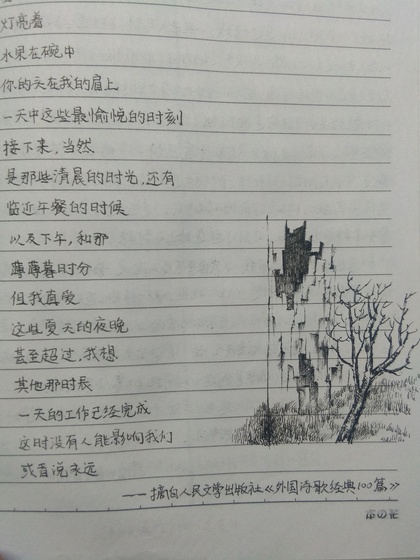 灯亮着
水果在碗中
你的头在我的肩上
一天中这些最愉悦的时刻
接下来，当然
是那些清晨的时光，还有
临近午餐的时候
以及下午，和那
薄薄暮时分
但我真爱
这些夏天的夜晚
甚至超过，我想
其他那时辰
一天的工作已经完成
这时没有人能影响我们
或者说永远
——摘自人民文学出版社《外国诗歌经典100篇》